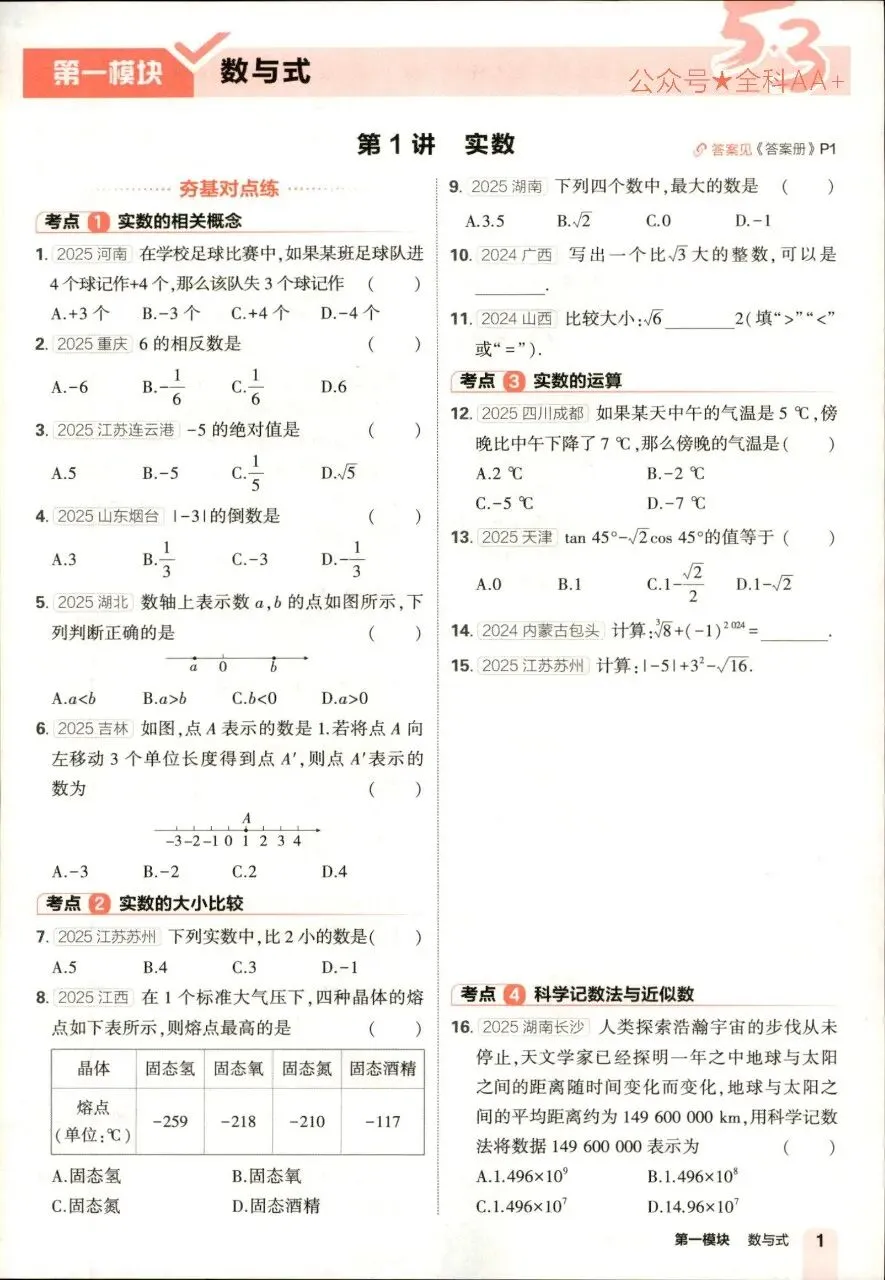 第一模块 数与式
5·3
公众号★全科AA+
第1讲 实数
答案见《答案册》P1
夯基对点练
考点1 实数的相关概念
1. 2025河南 在学校足球比赛中,如果某班足球队进
4个球记作+4个,那么该队失3个球记作 ( )
A.+3个 B.-3个 C.+4个 D.-4个
2. 2025重庆 6的相反数是 ( )
A.-6 B.-1/6 C.1/6 D.6
3. 2025江苏连云港 -5的绝对值是 ( )
A.5 B.-5 C.1/5 D.√5
4. 2025山东烟台 |-3|的倒数是 ( )
A.3 B.1/3 C.-3 D.-1/3
5. 2025湖北 数轴上表示数a,b的点如图所示,下
列判断正确的是 ( )
a 0 b
A.a<b B.a>b C.b<0 D.a>0
6. 2025吉林 如图,点A表示的数是1.若将点A向
左移动3个单位长度得到点A′,则点A′表示的
数为 ( )
A
-3 -2 -1 0 1 2 3 4
A.-3 B.-2 C.2 D.4
考点2 实数的大小比较
7. 2025江苏苏州 下列实数中,比2小的数是( )
A.5 B.4 C.3 D.-1
8. 2025江西 在1个标准大气压下,四种晶体的熔
点如下表所示,则熔点最高的是 ( )
晶体 固态氢 固态氧 固态氮 固态酒精
熔点
(单位:℃) -259 -218 -210 -117
A.固态氢 B.固态氧
C.固态氮 D.固态酒精
9. 2025湖南 下列四个数中,最大的数是 ( )
A.3.5 B.√2 C.0 D.-1
10. 2024广西 写出一个比√3大的整数,可以是
________.
11. 2024山西 比较大小:√6________2(填“>”“<”
或“=”).
考点3 实数的运算
12. 2025四川成都 如果某天中午的气温是5 ℃,傍
晚比中午下降了7 ℃,那么傍晚的气温是( )
A.2 ℃ B.-2 ℃
C.-5 ℃ D.-7 ℃
13. 2025天津 tan 45°-√2cos 45°的值等于 ( )
A.0 B.1 C.1-√2/2 D.1-√2
14. 2024内蒙古包头 计算:∛8+(-1)²⁰²⁴=________.
15. 2025江苏苏州 计算:|-5|+3²-√16.
考点4 科学记数法与近似数
16. 2025湖南长沙 人类探索浩瀚宇宙的步伐从未
停止,天文学家已经探明一年之中地球与太阳
之间的距离随时间变化而变化,地球与太阳之
间的平均距离约为149 600 000 km,用科学记数
法将数据149 600 000表示为 ( )
A.1.496×10⁹ B.1.496×10⁸
C.1.496×10⁷ D.14.96×10⁷
第一模块 数与式 1